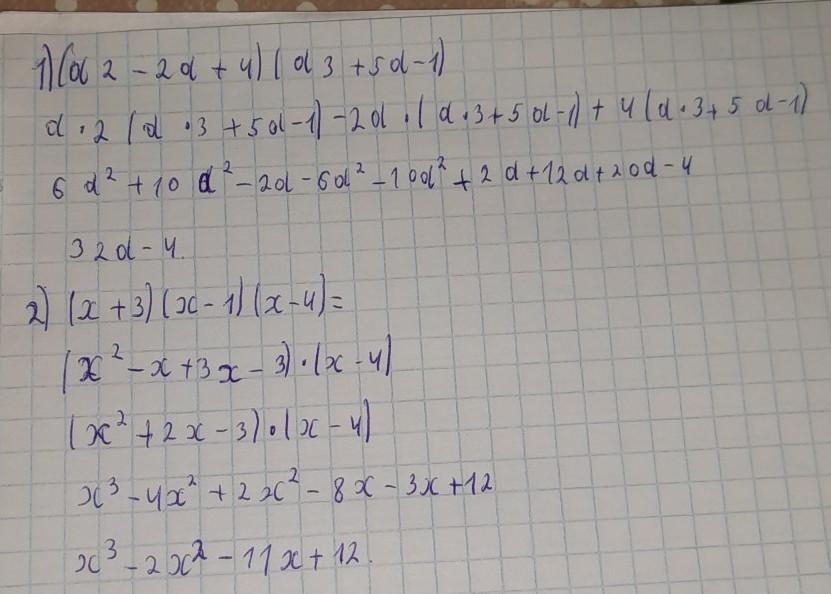 1) (d 2 - 2d + 4) (d 3 + 5d - 1)
d · 2 (d · 3 + 5d - 1) - 2d · (d · 3 + 5d - 1) + 4 (d · 3 + 5d - 1)
6 d² + 10 d² - 2d - 6d² - 10d² + 2d + 12d + 20d - 4
32d - 4.
2) (x + 3) (x - 1) (x - 4) =
(x² - x + 3x - 3) · (x - 4)
(x² + 2x - 3) · (x - 4)
x³ - 4x² + 2x² - 8x - 3x + 12
x³ - 2x² - 11x + 12.